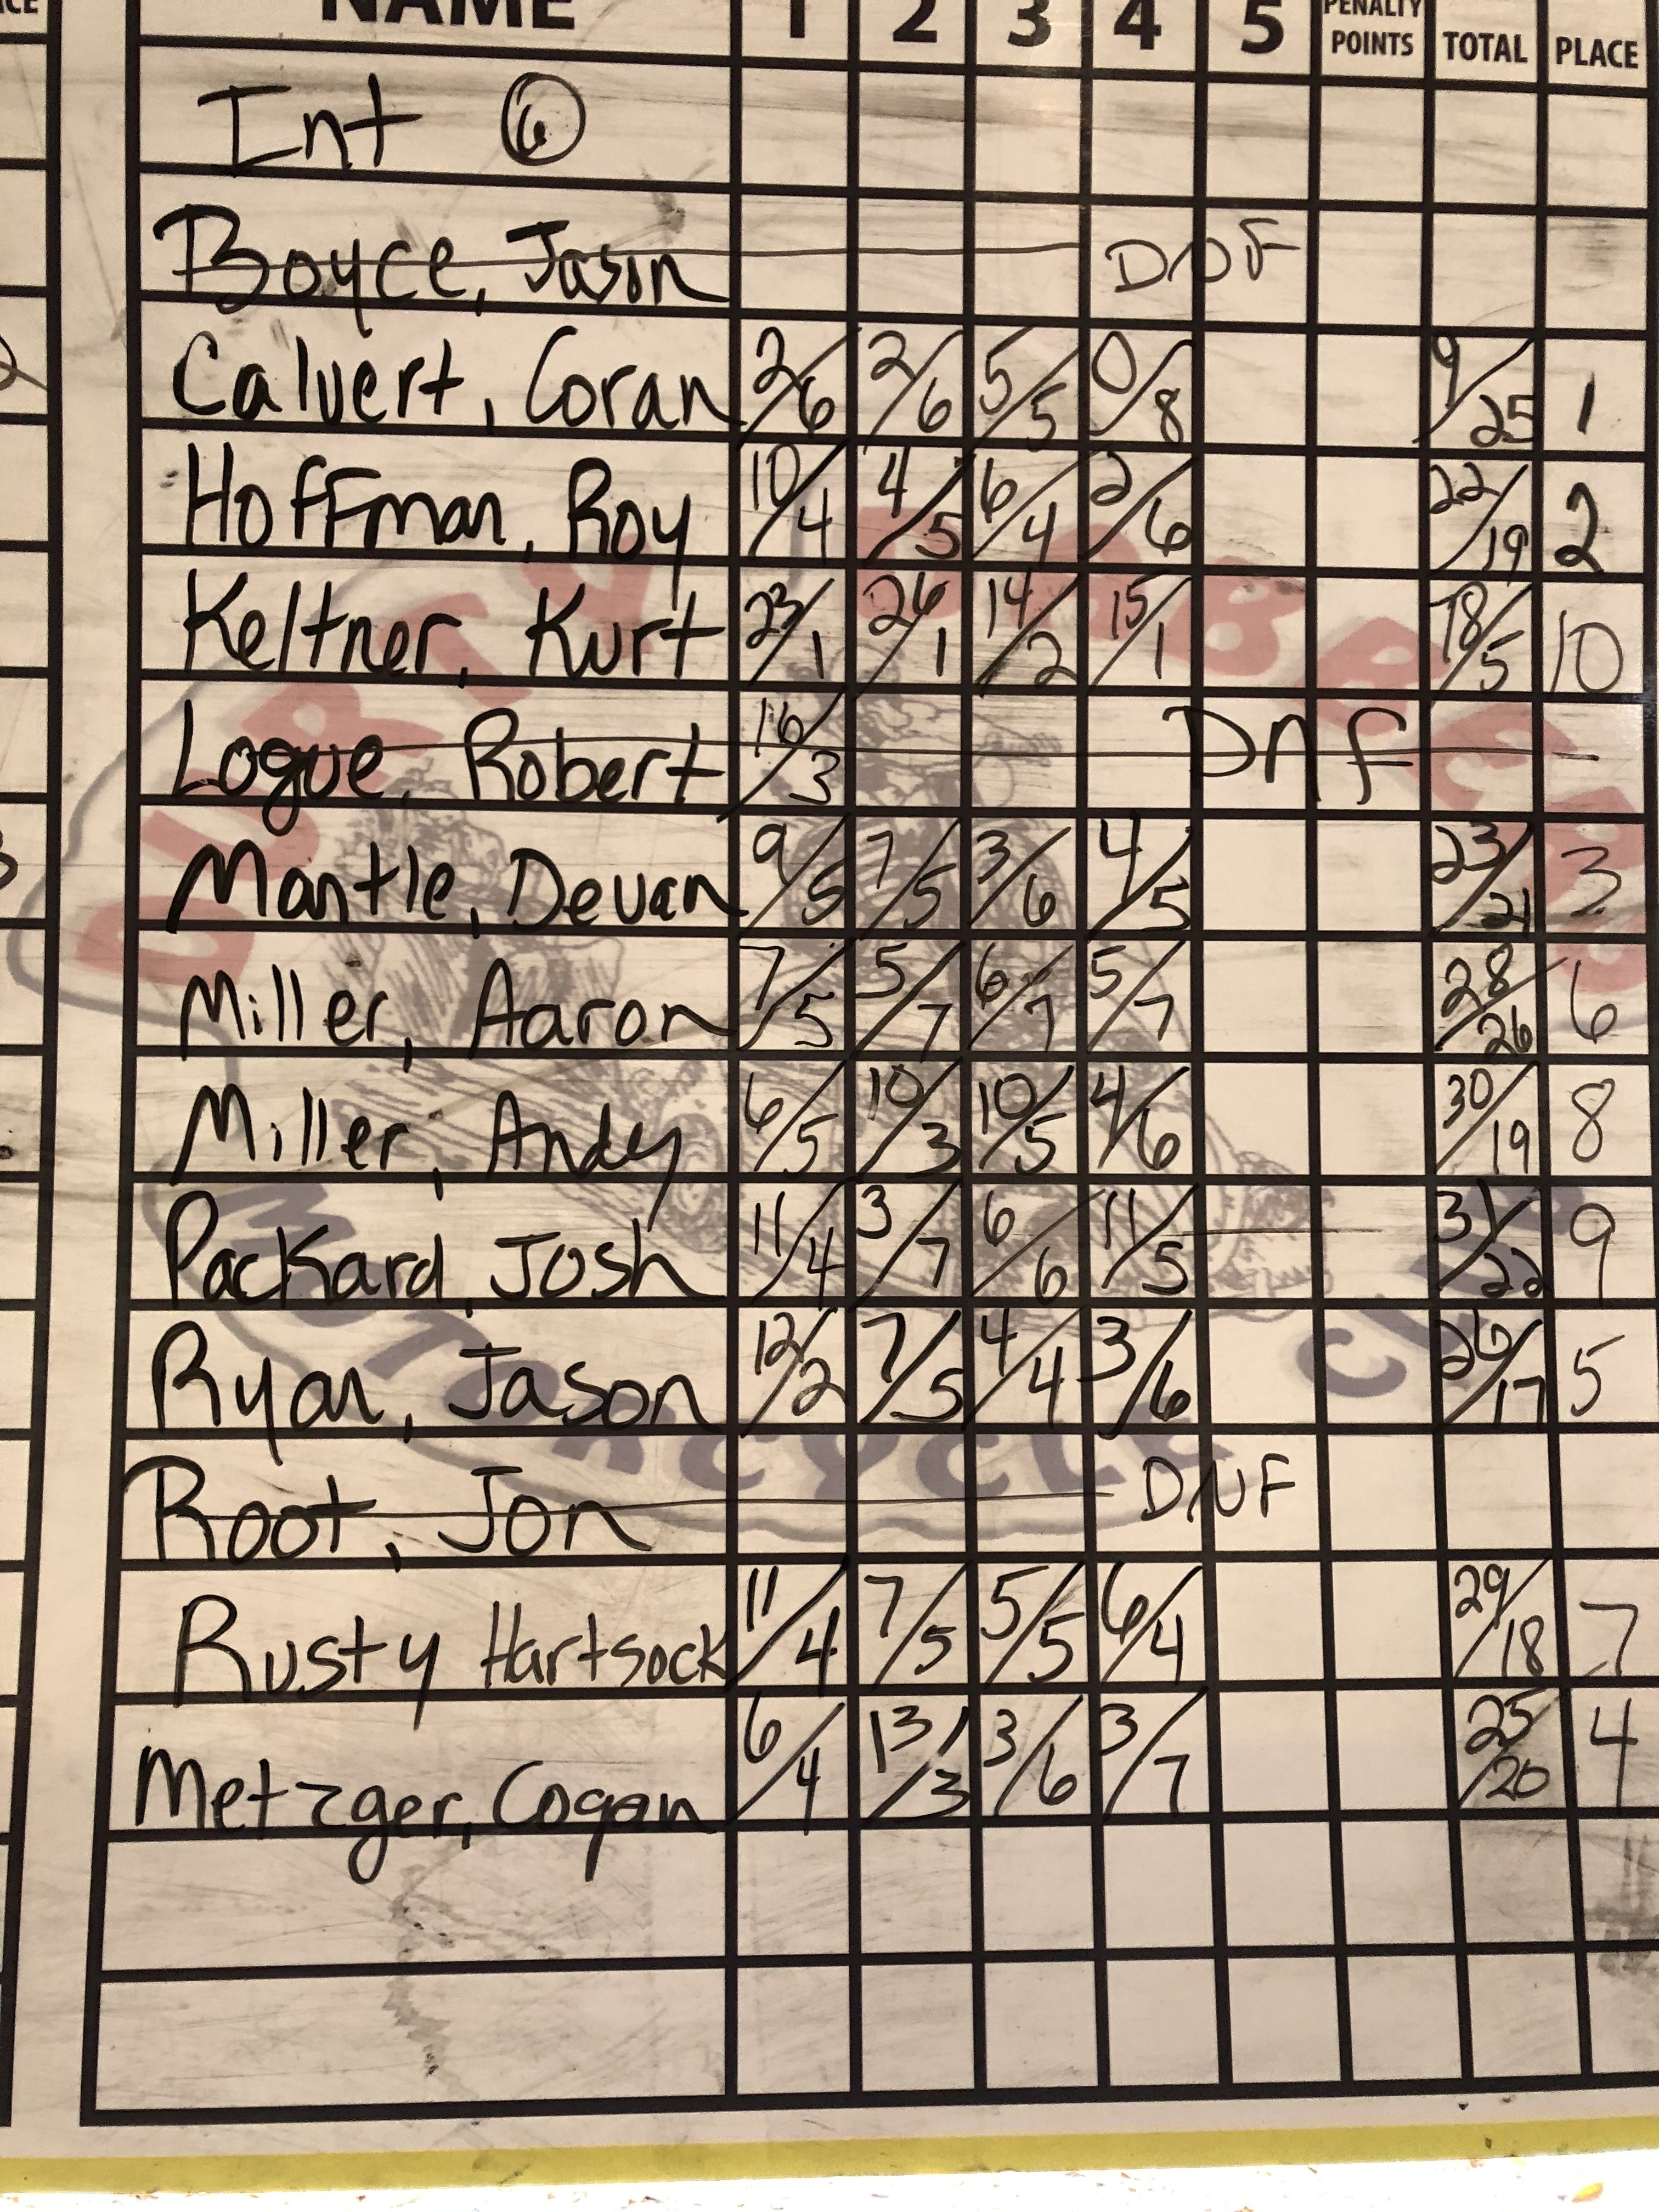 NAME 1 2 3 4 5 PENALTY POINTS TOTAL PLACE
Int 6
Boyce, Jason DNF
Calvert, Coran 2/6 2/6 5/5 0/8 9/25 1
Hoffman, Roy 10/4 4/5 6/4 2/6 22/19 2
Keltner, Kurt 23/1 26/1 14/2 15/1 78/5 10
Logue, Robert 16/3 Dnf -
Mantle, Devan 9/5 7/5 3/6 4/5 23/21 3
Miller, Aaron 7/5 5/7 6/7 5/7 28/26 6
Miller, Andy 6/5 10/3 10/5 4/6 30/19 8
Packard, Josh 11/4 3/7 6/6 11/5 31/22 9
Ryan, Jason 12/2 7/5 4/4 3/6 26/17 5
Root, Jon DNF
Rusty Hartsock 11/4 7/5 5/5 6/4 29/18 7
Metzger, Cogan 6/4 13/3 3/6 3/7 25/20 4
DURTY DABBERS
MOTORCYCLE CLUB